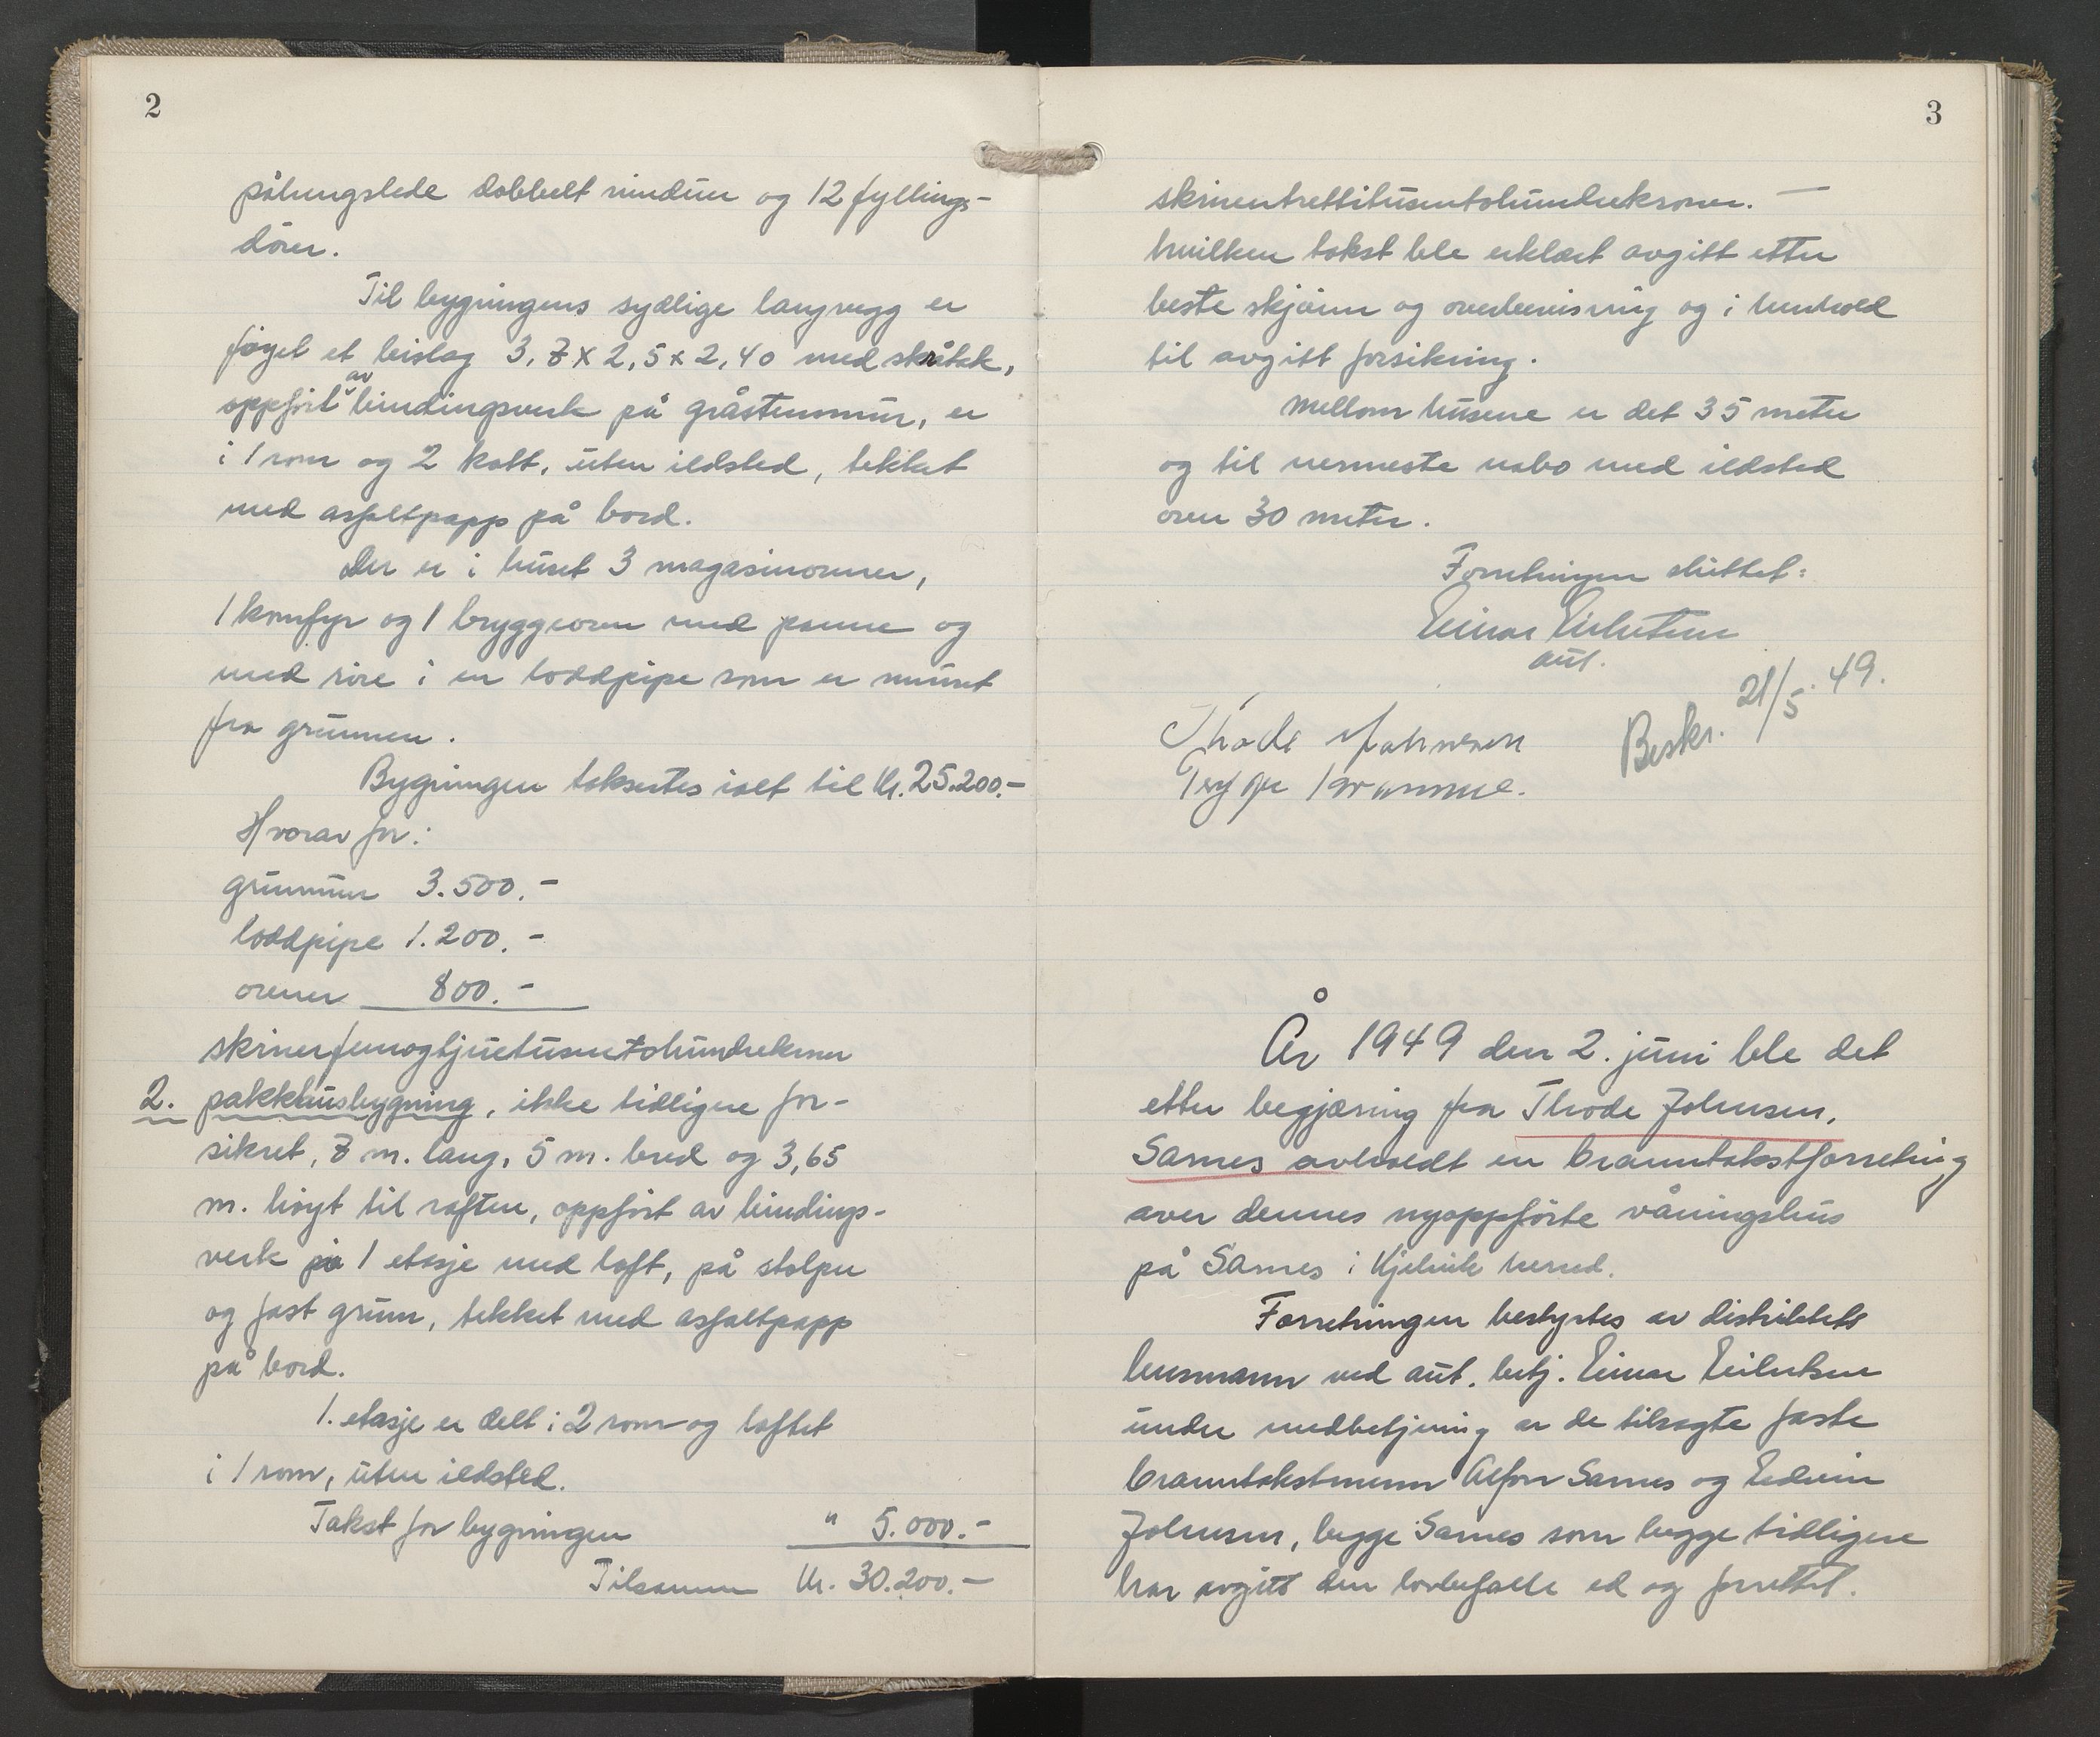 2
påhengslede dobbelt vinduer og 12 fyllings-
dører.
Til bygningens sydlige langvegg er
føyet et bislag 3,7 x 2,5 x 2,40 med skråtak,
oppført av bindingsverk på gråstensmur, er
i 1 rom og 2 kott, uten ildsted, tekket
med asfaltpapp på bord.
Der er i huset 3 magasinovner,
1 komfyr og 1 bryggeovn med panne og
med röre i en loddpipe som er muret
fra grunnen.
Bygningen takseres ialt til Kr. 25.200.-
Hvorav for:
grunnmur 3.500.-
loddpipe 1.200.-
ovner 800.-
skriverfemogtjuetusentohundrekroner
2. pakkhusbygning, ikke tidligere for-
sikret, 7 m. lang, 5 m. bred og 3,65
m. høyt til raften, oppført av bindings-
verk på 1 etasje med loft, på stolper
og fast grunn, tekket med asfaltpapp
på bord.
1. etasje er delt i 2 rom og loftet
i 1 rom, uten ildsted.
Takst for bygningen " 5.000.-
Tilsammen Kr. 30.200.-
3
skriventrettitusentohundrekroner. —
hvilken takst ble erklært avgitt etter
beste skjønn og overbevisning og i henhold
til avgitt forsikring.
Mellom husene er det 35 meter
og til nermeste nabo med ildsted
over 30 meter.
Forretningen sluttet:
Einar Eilertsen
aut.
Thode Johnsen
Trygve
Beskr. 21/5. 49.
År 1949 den 2. juni ble det
etter begjæring fra Thode Johnsen,
Sarnes avholdt en branntakstforretning
over dennes nyoppførte våningshus
på Sarnes i Kjelvik herred.
Forretningen bestyrtes av distriktets
lensmann ved aut. betj. Einar Eilertsen
under medbetjening av de tilsagte faste
branntakstmenn Alfon Sarnes og Edvin
Johnsen, begge Sarnes som begge tidligere
har avgitt den lovbefalte ed og forrettet.